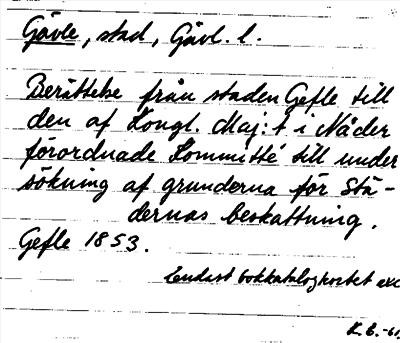 Gävle, stad, Gävl. l.
Berättelse från staden Gefle till
den af Kongl. Maj:t i Nåder
förordnade Kommitté till under
sökning af grunderna för Stä-
dernas beskattning.
Gefle 1853.
Endast bokkatalogkortet exc
K. E. -61